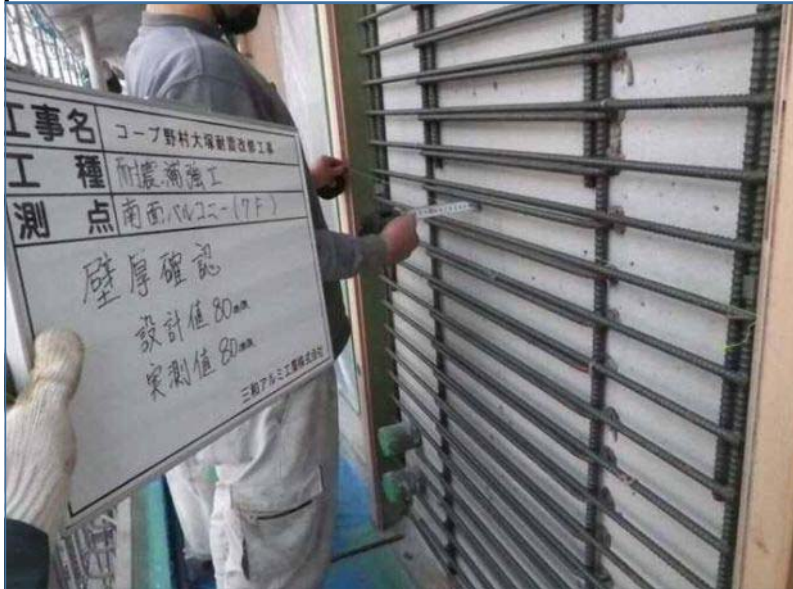 工事名 コープ野村大塚耐震改修工事
工種 耐震補強工
測点 南面バルコニー(7F)
壁厚確認
設計値 80mm
実測値 80mm
三和アルミ工業株式会社